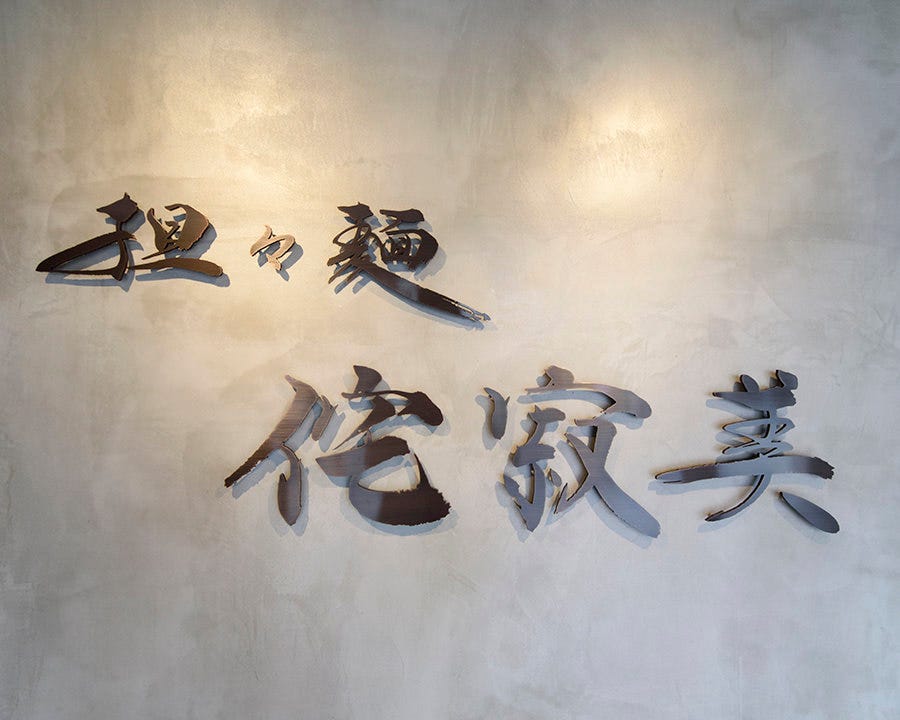 担々麺
侘寂美